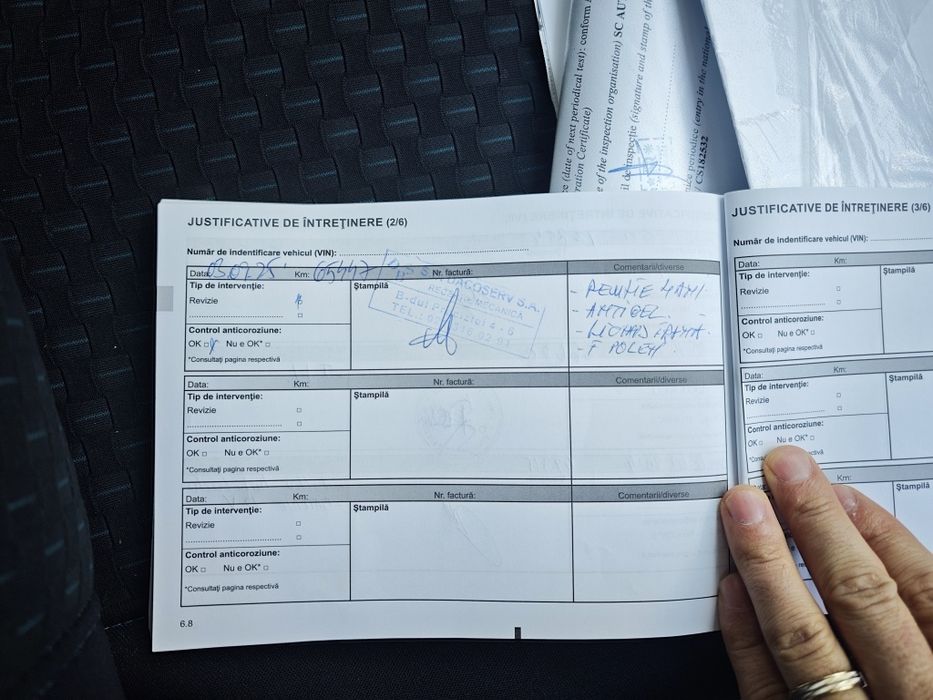 e (date of next periodical test): conform
ration Certificate)
e of the inspection organisation) SC AU
il de inspecție (signature and stamp of th
ice periodice (entry in the national
CS182532
JUSTIFICATIVE DE ÎNTREȚINERE (2/6)
Număr de indentificare vehicul (VIN):
Data: 03.02.25 Km: 65447 Nr. factură: Comentarii/diverse
Tip de intervenție:
Revizie
Ștampilă
DACOSERV S.A.
MECANICA
B-dul
TEL.:
- REVIZIE 4 ANI.
- ANTIGEL.
- LICHID FRANA.
- F POLEN.
Control anticoroziune:
OK Nu e OK*
*Consultați pagina respectivă
Data: Km: Nr. factură: Comentarii/diverse
Tip de intervenție:
Revizie
Ștampilă
Control anticoroziune:
OK Nu e OK*
*Consultați pagina respectivă
Data: Km: Nr. factură: Comentarii/diverse
Tip de intervenție:
Revizie
Ștampilă
Control anticoroziune:
OK Nu e OK*
*Consultați pagina respectivă
6.8
JUSTIFICATIVE DE ÎNTREȚINERE (3/6)
Număr de indentificare vehicul (VIN):
Data: Km:
Tip de intervenție:
Revizie
Ștampilă
Control anticoroziune:
OK Nu e OK*
*Consultați pagina respectivă
Data: Km:
Tip de intervenție:
Revizie
Ștampilă
Control anticoroziune:
OK Nu e OK*
Km:
Ștampilă